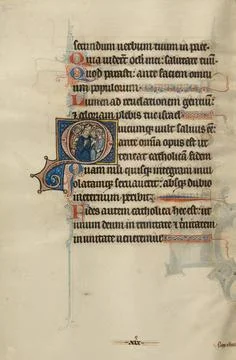 secundum uerbum tuum in pace.
Quia uiderunt oculi mei: salutare tuum.
Quod parasti: ante faciem omni
um populorum.
Lumen ad reuelationem gentium:
et gloriam plebis tue israel.
Quicumque uult saluus esse:
ante omnia opus est ut
teneat catholicam fidem.
Quam nisi quisque integram inui
olatamque seruauerit: absque dubio
in eternum peribit.
Fides autem catholica hec est: ut
unum deum in trinitate et trinitatem
in unitate ueneremur.
xix